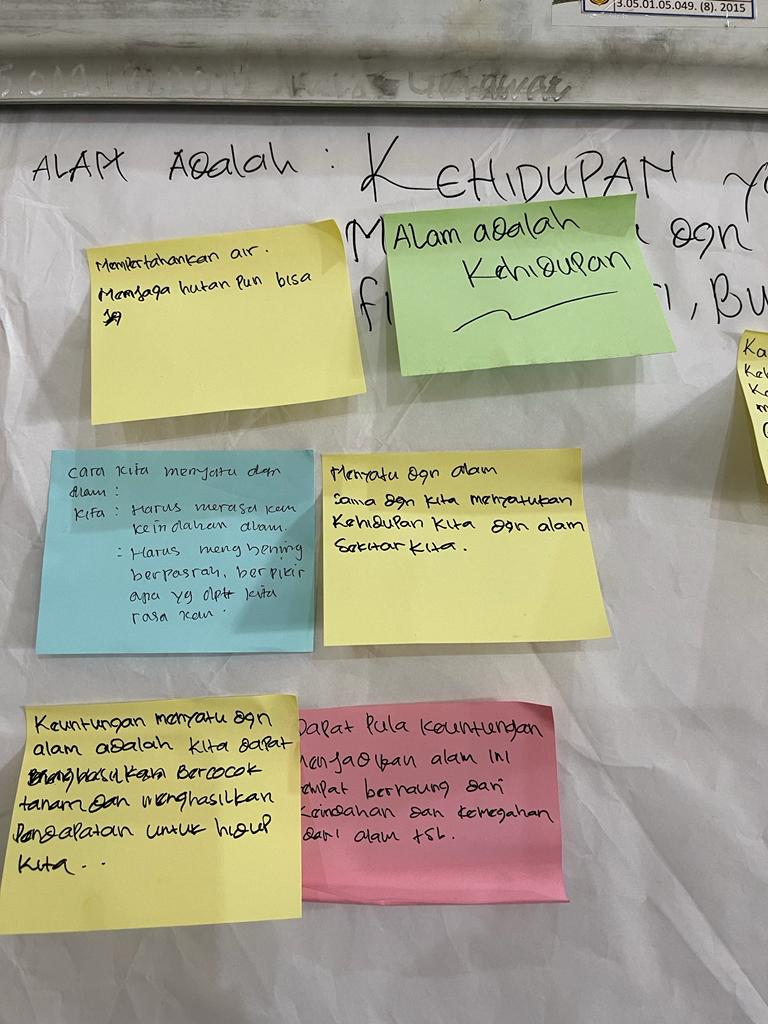 3.05.01.05.049. (8). 2015
ALAM Adalah : KEHIDUPAN
dgn
, Bu
Mempertahankan air.
Menjaga hutan pun bisa
Alam adalah
Kehidupan
cara kita menyatu dgn
alam :
kita : Harus merasa kan
keindahan alam.
: Harus menghening
berpasrah, berpikir
apa yg dpt kita
rasa kan.
Menyatu dgn alam
sama dgn kita menyatukan
kehidupan kita dgn alam
sekitar kita.
Keuntungan menyatu dgn
alam adalah kita dapat
Bercocok
tanam dan menghasilkan
pendapatan untuk hidup
kita...
Dapat pula keuntungan
menjadikan alam ini
tempat bernaung dari
keindahan dan kemegahan
dari alam tsb.